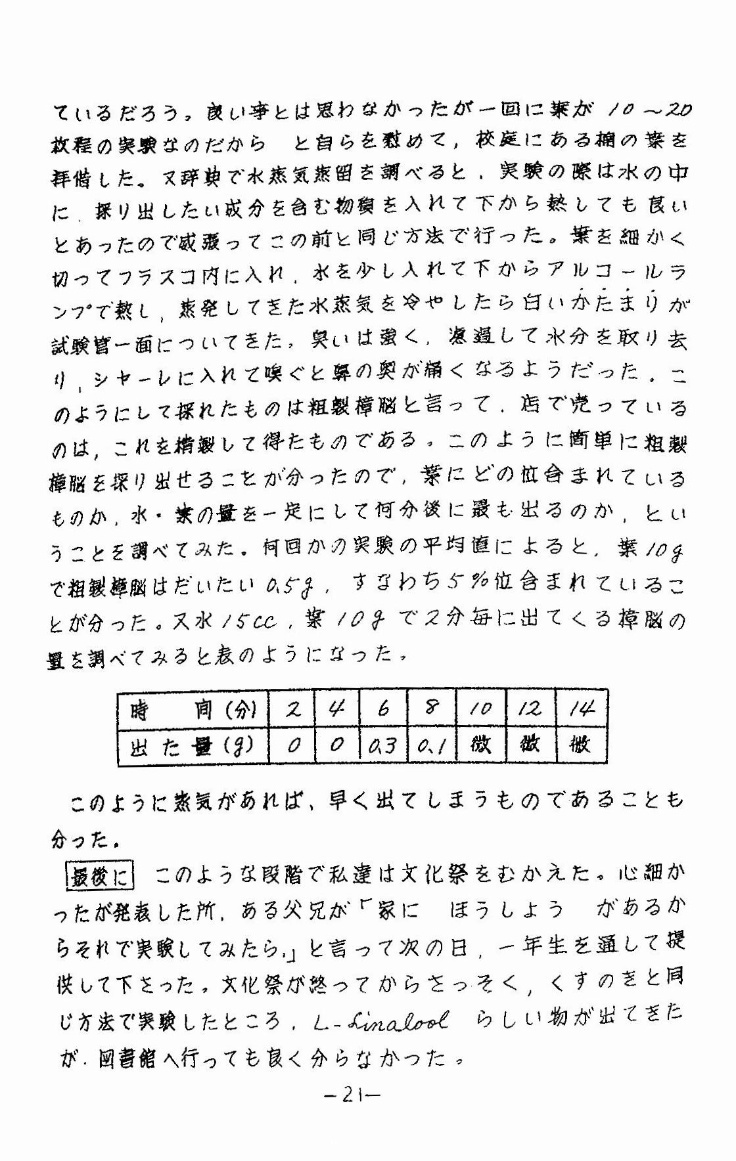 ているだろう。良い事とは思わなかったが一回に葉が 10～20
枚程の実験なのだから と自らを慰めて，校庭にある楠の葉を
拝借した。又辞典で水蒸気蒸留を調べると，実験の際は水の中
に，採り出したい成分を含む物質を入れて下から熱しても良い
とあったので威張ってこの前と同じ方法で行った。葉を細かく
切ってフラスコ内に入れ，水を少し入れて下からアルコールラ
ンプで熱し，蒸発してきた水蒸気を冷やしたら白いかたまりが
試験管一面についてきた。臭いは強く，濾過して水分を取り去
り，シャーレに入れて嗅ぐと鼻の奥が痛くなるようだった。こ
のようにして採れたものは粗製樟脳と言って，店で売っている
のは，これを精製して得たものである。このように簡単に粗製
樟脳を採り出せることが分ったので，葉にどの位含まれている
ものか，水・葉の量を一定にして何分後に最も出るのか，とい
うことを調べてみた。何回かの実験の平均値によると，葉10g
で粗製樟脳はだいたい 0.5g，すなわち5%位含まれているこ
とが分った。又水15cc，葉10gで2分毎に出てくる樟脳の
量を調べてみると表のようになった。
時 間(分) 2 4 6 8 10 12 14
出た量(g) 0 0 0.3 0.1 微 微 微
このように蒸気があれば，早く出てしまうものであることも
分った。
最後に このような段階で私達は文化祭をむかえた。心細か
ったが発表した所，ある父兄が「家に ほうしよう があるか
らそれで実験してみたら。」と言って次の日，一年生を通して提
供して下さった。文化祭が終ってからさっそく，くすのきと同
じ方法で実験したところ，L-Linalool らしい物が出てきた
が，図書館へ行っても良く分らなかった。
—21—